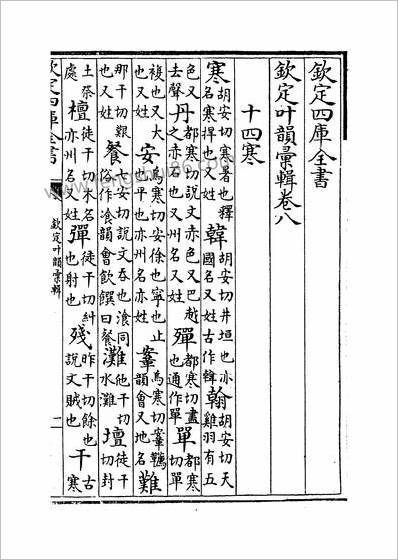 欽定四庫全書
欽定叶韻彙輯卷八
十四寒
寒胡安切寒暑也釋名寒捍也又姓韓胡安切井垣也亦國名又姓古作韓翰胡安切天雞羽有五
色又去聲丹都寒切說文赤色又巴越之赤石也又州名又姓殫都寒切盡也通作單單都寒切單
複也又大也又姓安烏寒切安徐也寧也止也平也亦州名亦姓鞌烏寒切鞌韉韻會又地名難
那干切艱也又姓餐七安切說文吞也湌同俗作飡韻會飲饌曰餐灘他干切水灘壇徒干切封
土祭處檀徒干切木名亦州名又姓彈徒干切糾也射也殘昨干切餘也說文賊也干古寒
欽定四庫全書
欽定叶韻彙輯
一